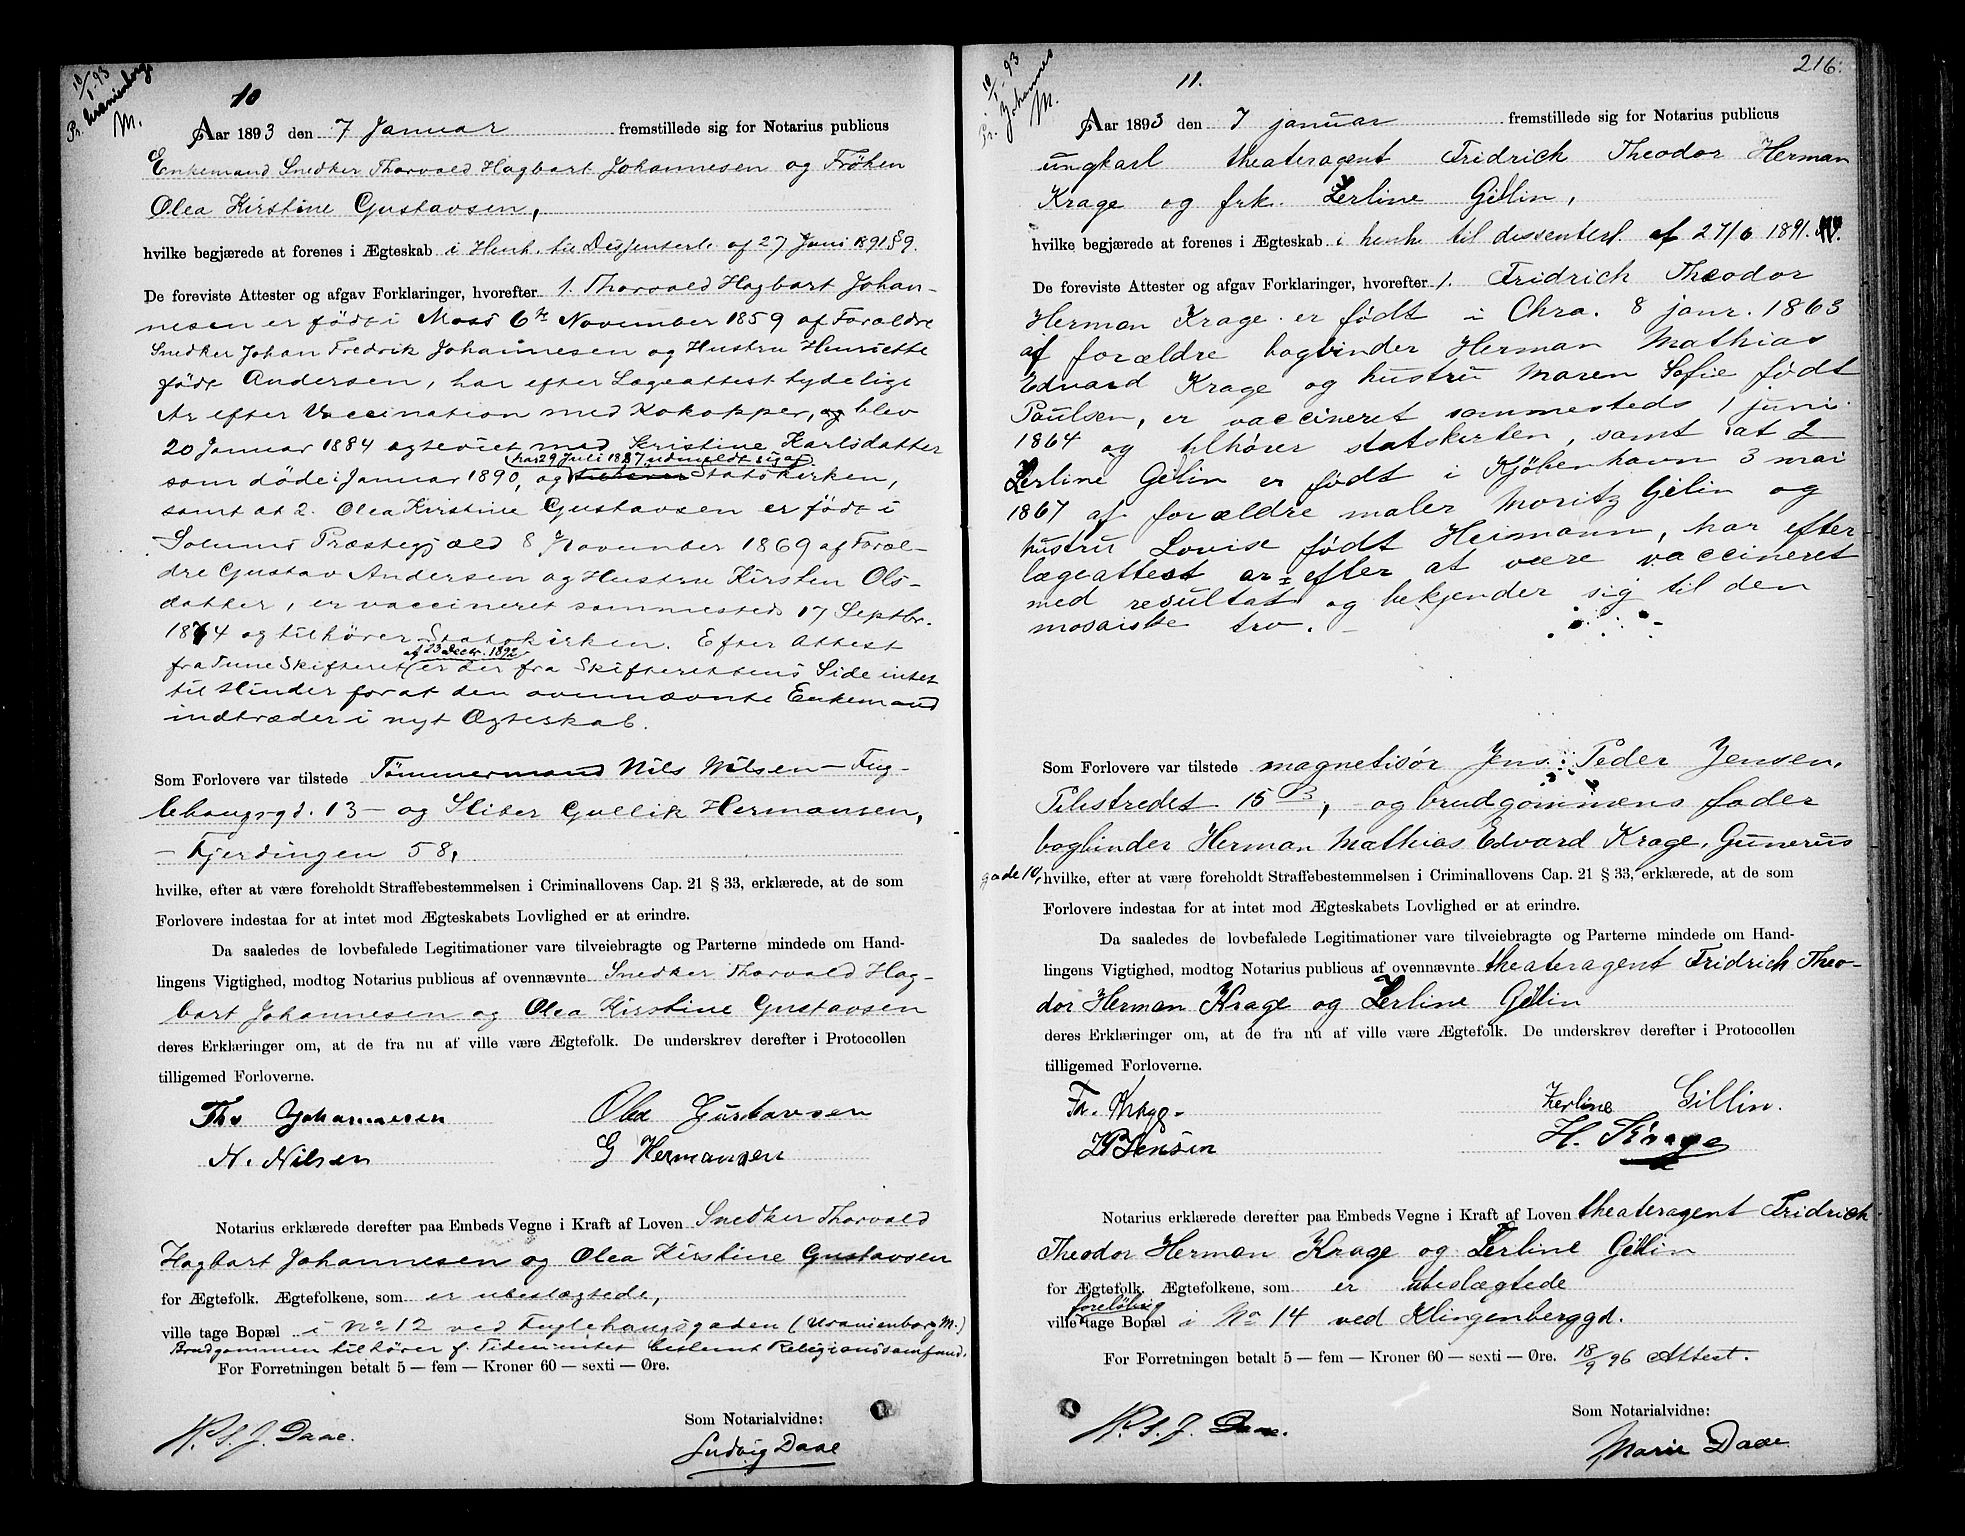 10/1 93
Pr. Uranienborgs
M.
10
Aar 1893 den 7 Januar fremstillede sig for Notarius publicus
Enkemand Snedker Thorvald Hagbart Johannesen og Frøken
Olea Kirstine Gustavsen,
hvilke begjærede at forenes i Ægteskab i Henh. til Dissenterl. af 27 Juni 1891 § 9.
De foreviste Attester og afgav Forklaringer, hvorefter 1. Thorvald Hagbart Johan-
nesen er født i Moss 6te November 1859 af Forældre
Snedker Johan Fredrik Johannesen og Hustru Henriette
føde Andersen, har efter Lægeattest tydelige
Ar efter Vaccination med Kokopper, og blev
20 Januar 1884 ægteviet med Kristine Karlsdatter
har 29 Juli 1887 udmeldt sig af
som døde i Januar 1890, og tilhører Statskirken,
samt at 2. Olea Kirstine Gustavsen er født i
Solums Præstegjæld 8 November 1869 af Foræl-
dre Gustav Andersen og Hustru Kirsten Ols-
datter, er vaccineret sammesteds 17 Septbr.
1874 og tilhører Statskirken. Efter Attest
af 23 Decbr. 1892
fra Tune Skifteret er der fra Skifterettens Side intet
til Hinder for at den ovennævnte Enkemand
indtræder i nyt Ægteskab.
Som Forlovere var tilstede Tømmermand Nils Nilsen – Fug-
lehaugsgd. 13 – og Sliber Gullik Hermansen,
– Fjerdingen 58,
hvilke, efter at være foreholdt Straffebestemmelsen i Criminallovens Cap. 21 § 33, erklærede, at de som
Forlovere indestaa for at intet mod Ægteskabets Lovlighed er at erindre.
Da saaledes de lovbefalede Legitimationer vare tilveiebragte og Parterne mindede om Hand-
lingens Vigtighed, modtog Notarius publicus af ovennævnte Snedker Thorvald Hag-
bart Johannesen og Olea Kirstine Gustavsen
deres Erklæringer om, at de fra nu af ville være Ægtefolk. De underskrev derefter i Protocollen
tilligemed Forloverne.
Tho Johannesen Olea Gustavsen
N. Nilsen G Hermansen
Notarius erklærede derefter paa Embeds Vegne i Kraft af Loven Snedker Thorvald
Hagbart Johannesen og Olea Kirstine Gustavsen
for Ægtefolk. Ægtefolkene, som er ubeslægtede,
ville tage Bopæl i No 12 ved Fuglehaugsgaden (Uranienborg M.)
Brudgommen tilhører f. Tiden intet bestemt Religionssamfund.
For Forretningen betalt 5 — fem — Kroner 60 — sexti — Øre.
Som Notarialvidne:
N. S. J. Daae.
Ludvig Daae
10/1 93
Pr. Johannes
M.
216.
11.
Aar 1893 den 7 januar fremstillede sig for Notarius publicus
ungkarl theateragent Fridrich Theodor Herman
Krage og frk. Zerline Gillin,
hvilke begjærede at forenes i Ægteskab i henh. til dissenterl. af 27/6 1891.
De foreviste Attester og afgav Forklaringer, hvorefter 1. Fridrich Theodor
Herman Krage er født i Chra. 8 janr. 1863
af forældre bogbinder Herman Mathias
Edvard Krage og hustru Maren Sofie født
Paulsen, er vaccineret sammesteds 1 juni
1864 og tilhører statskirken, samt at 2
Zerline Gilin er født i Kjøbenhavn 3 mai
1867 af forældre maler Moritz Gjelin og
hustru Lovise født Heimann, har efter
lægeattest ar efter at være vaccineret
med resultat og bekjender sig til den
mosaiske tro. –
Som Forlovere var tilstede magnetisør Jns. Peder Jensen,
Pilestredet 15 B, – og brudgommens fader
bogbinder Herman Mathias Edvard Krage, Gunerus
gade 10, hvilke, efter at være foreholdt Straffebestemmelsen i Criminallovens Cap. 21 § 33, erklærede, at de som
Forlovere indestaa for at intet mod Ægteskabets Lovlighed er at erindre.
Da saaledes de lovbefalede Legitimationer vare tilveiebragte og Parterne mindede om Hand-
lingens Vigtighed, modtog Notarius publicus af ovennævnte theateragent Fridrich Theo-
dor Herman Krage og Zerline Gillin
deres Erklæringer om, at de fra nu af ville være Ægtefolk. De underskrev derefter i Protocollen
tilligemed Forloverne.
Fr. Krage Zerline Gillin.
JP Jensen H. Krage
Notarius erklærede derefter paa Embeds Vegne i Kraft af Loven theateragent Fridrich
Theodor Herman Krage og Zerline Gillin
for Ægtefolk. Ægtefolkene, som er ubeslægtede
foreløbig
ville tage Bopæl i No 14 ved Klingenberggd.
For Forretningen betalt 5 — fem — Kroner 60 — sexti — Øre. 18/9 96 Attest.
Som Notarialvidne:
N. S. J. Daae.
Marie Daae